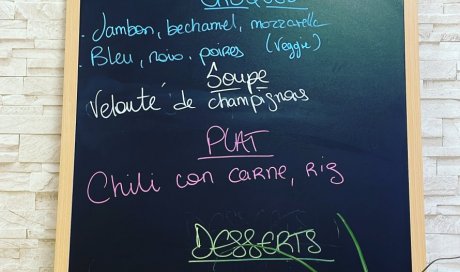 - Jambon, bechamel, mozzarella
- Bleu, noix, poires (Veggie)
Soupe
Velouté de champignons
PLAT
Chili con carne, riz
DESSERTS